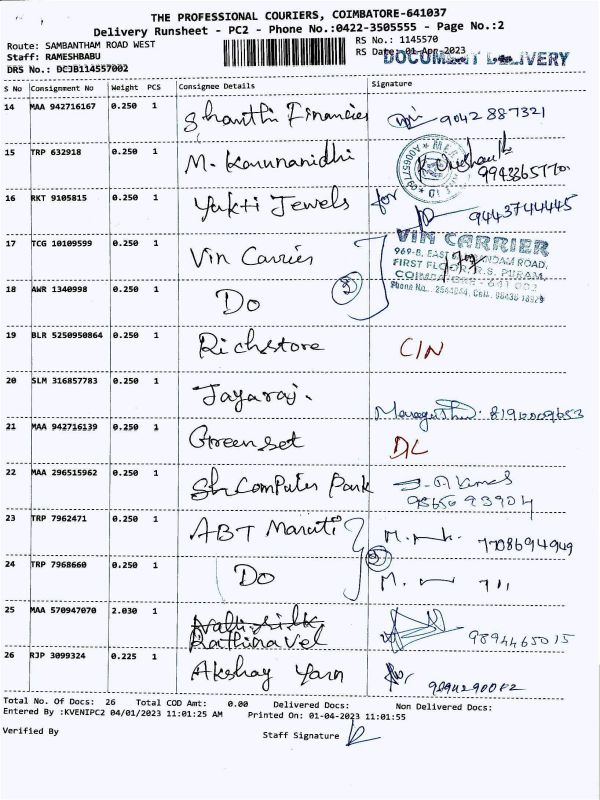 THE PROFESSIONAL COURIERS, COIMBATORE-641037
Delivery Runsheet - PC2 - Phone No.:0422-3505555 - Page No.:2
Route: SAMBANTHAM ROAD WEST RS No.: 1145570
Staff: RAMESHBABU RS Date: 01-Apr-2023 DOCUMENT DELIVERY
DRS No.: DCJB114557002
S No Consignment No Weight PCS Consignee Details Signature
14 MAA 942716167 0.250 1 Shanthi Financiers 9042 887321
15 TRP 632918 0.250 1 M. Karunanidhi
16 RKT 9105815 0.250 1 Yukti Jewels for 9443744445
17 TCG 10109599 0.250 1 Vin Carries VIN CARRIER
FIRST FLOOR, R.S. PURAM,
COIMBATORE - 641 002
18 AWR 1340998 0.250 1 Do
19 BLR 5250950864 0.250 1 Richstore C/N
20 SLM 316857783 0.250 1 Jayaraj.
21 MAA 942716139 0.250 1 Greenset D/L
22 MAA 296515962 0.250 1 Sh Computer Park
23 TRP 7962471 0.250 1 ABT Maruti 7708694949
24 TRP 7968660 0.250 1 Do
25 MAA 570947070 2.030 1 Rathinavel 9894465015
26 RJP 3099324 0.225 1 Akshay Yarn for
Total No. Of Docs: 26 Total COD Amt: 0.00 Delivered Docs: Non Delivered Docs:
Entered By :KVENIPC2 04/01/2023 11:01:25 AM Printed On: 01-04-2023 11:01:55
Verified By Staff Signature